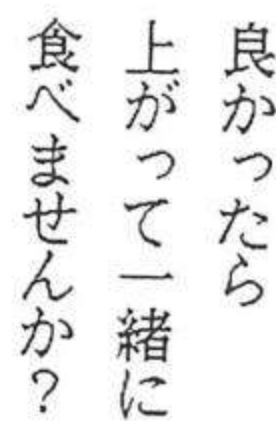 良かったら
上がって一緒に
食べませんか？